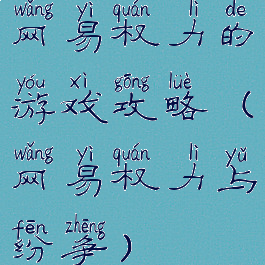 wǎng yì quán lì de
网易权力的
yóu xì gōng lüè
游戏攻略（
wǎng yì quán lì yǔ
网易权力与
fēn zhēng
纷争）